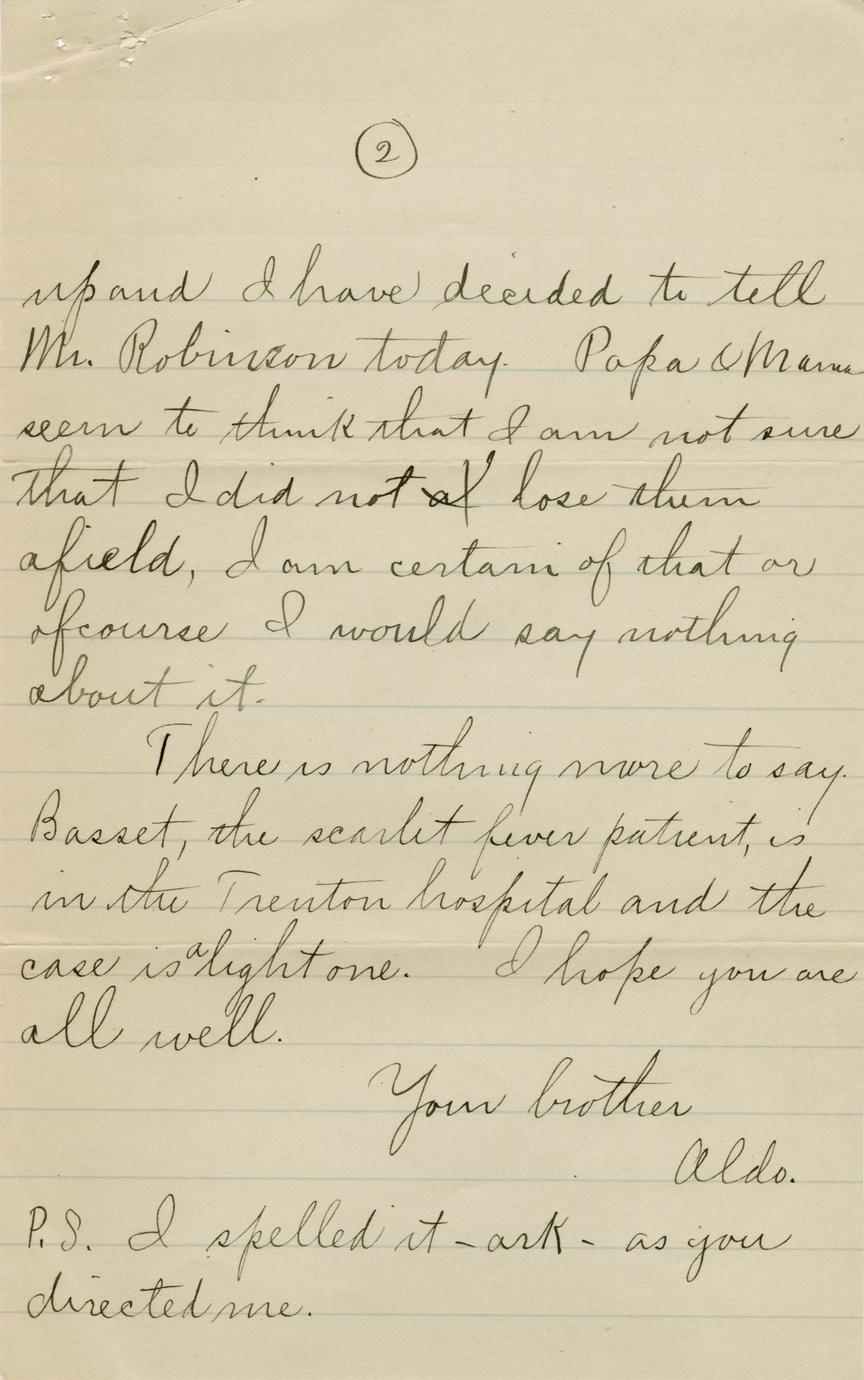 ②
up and I have decided to tell
Mr. Robinson today. Papa & Mama
seem to think that I am not sure
that I did not lose them
afield, I am certain of that or
ofcourse I would say nothing
about it.
There is nothing more to say.
Basset, the scarlet fever patient, is
in the Trenton hospital and the
case is a light one. I hope you are
all well.
Your brother
Aldo.
P.S. I spelled it - ark - as you
directed me.